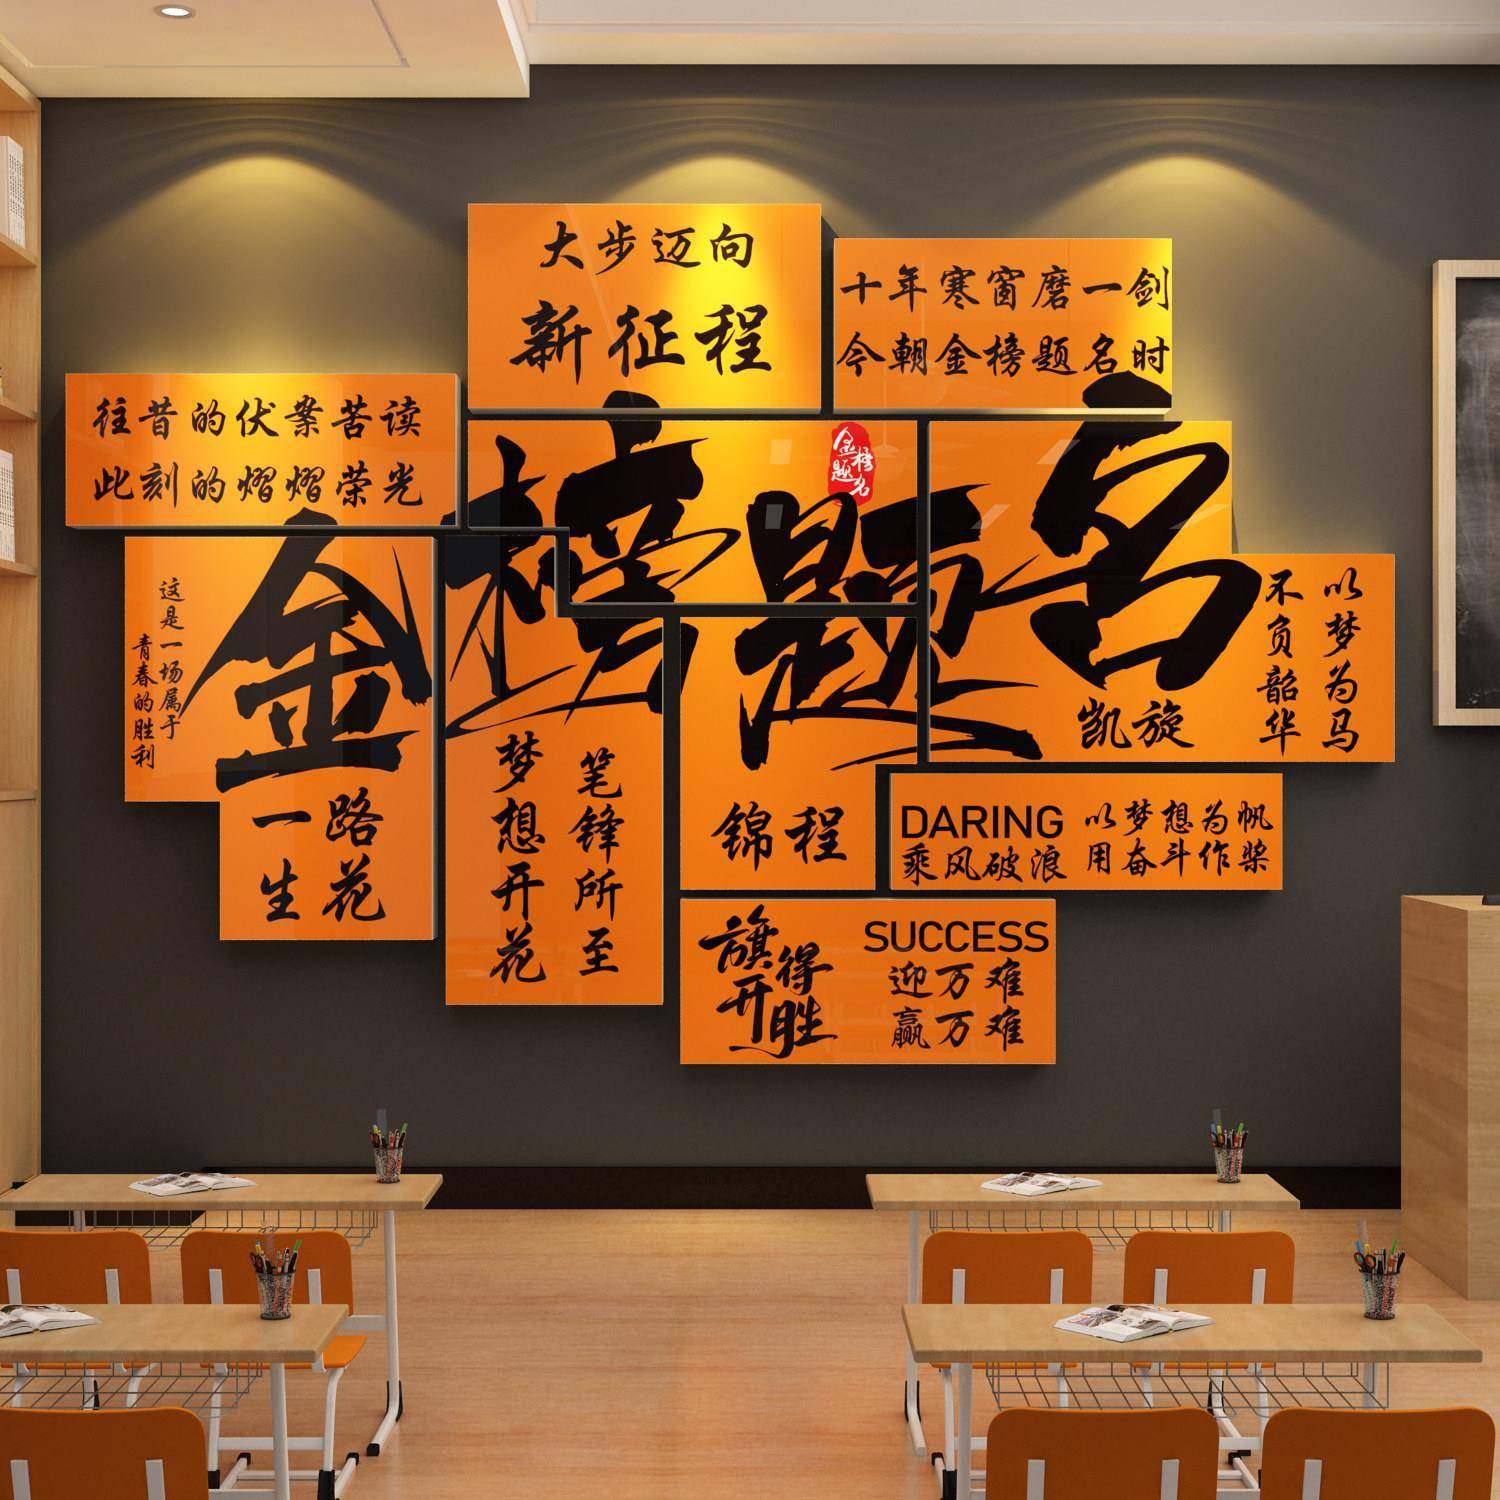 大步迈向
新征程
十年寒窗磨一剑
今朝金榜题名时
往昔的伏案苦读
此刻的熠熠荣光
金榜题名
金榜题名
这是一场属于
青春的胜利
一路
生花
笔锋所至
梦想开花
锦程
凯旋
以梦为马
不负韶华
DARING
乘风破浪
以梦想为帆
用奋斗作桨
旗开得胜
SUCCESS
迎万难
赢万难